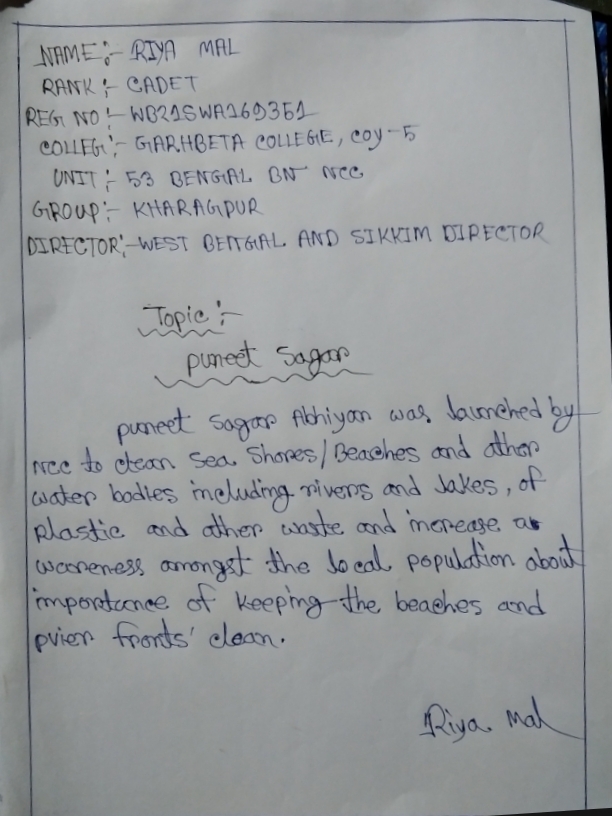 NAME:- RIYA MAL
RANK:- CADET
REG NO:- WB21SWA169351
COLLEG:- GARHBETA COLLEGE, COY-5
UNIT:- 53 BENGAL BN NCC
GROUP:- KHARAGPUR
DIRECTOR:- WEST BENGAL AND SIKKIM DIRECTOR
Topic:-
puneet Sagar
puneet Sagar Abhiyan was launched by
NCC to clean Sea Shores/Beaches and other
water bodies including rivers and lakes, of
Plastic and other waste and increase a
wareness amongst the local population about
importance of keeping the beaches and
pvier fronts' clean.
Riya Mal